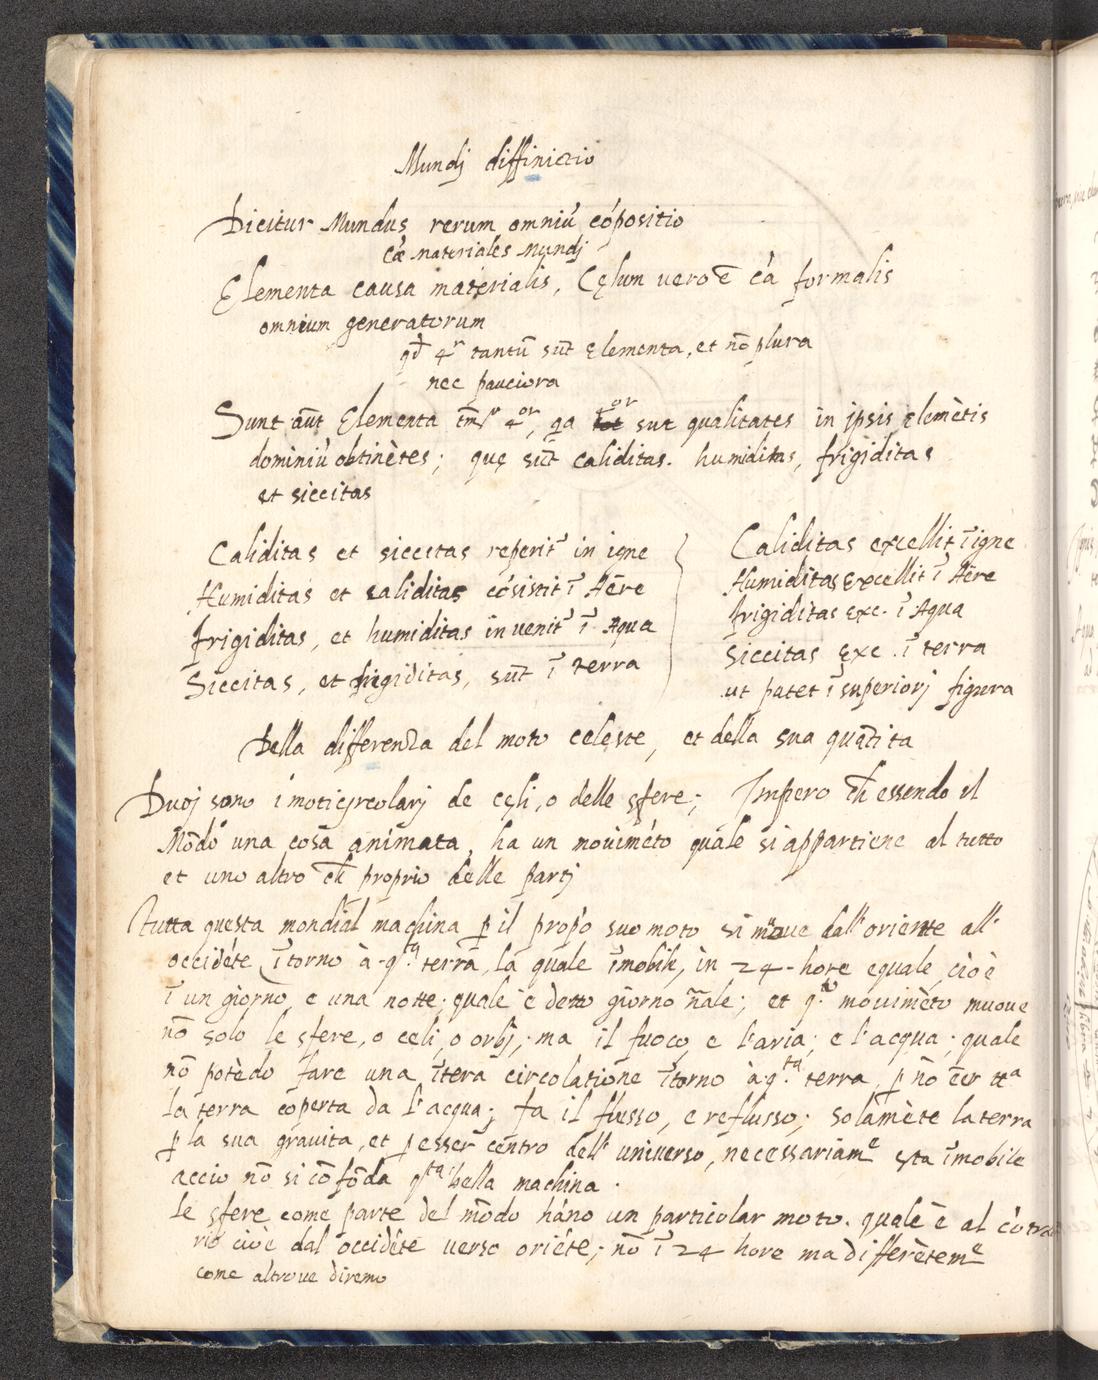 Mundj diffinicio
Dicitur Mundus rerum omniū cōpositio
Cæ materiales Mundj
Elementa causa materialis, Cęlum vero ē cā formalis
omnium generatorum
qd 4r tantū sūt Elementa, et nō plura
nec pauciora
Sunt aūt Elementa tm̄ 4or, qa 4or sūt qualitates in jpsis elemētis
dominiū obtinētes; quę sūt caliditas. humiditas, frigiditas
et siccitas
Caliditas et siccitas reperit' in igne
Humiditas et caliditas cōsistit ī Aēre
frigiditas, et humiditas invenit' ī Aqua
Siccitas, et frigiditas, sūt ī terra
Caliditas excellit ī igne
Humiditas Excellit ī Aēre
frigiditas exc. ī Aqua
Siccitas Exc. ī terra
ut patet ī superiorj figura
Della differenza del moto celeste, et della sua quātita
Duoj sono i moti circolarj de cęli, o delle sfere; Impero ch̄ essendo il
Mōdo una cosa animata, ha un movimēto quale si appartiene al tutto
et uno altro ch̄ proprio delle partj
Tutta questa mondial machina p̄ il propo suo moto si muove dall' oriente all'
occidēte ītorno à qta terra, la quale īmobile, in 24 hore equale, cioè
ī un giorno, e una notte; quale è detto giorno n̄ale; et qto movimēto muove
nō solo le sfere, o celi, o orbj; ma il fuoco, e l'aria; e l'acqua; quale
nō potēdo fare una ītera circolatione ītorno à qta terra, p̄ nō eēr tta
la terra coperta da l'acqua; fa il flusso, e reflusso; solamēte la terra
p̄ la sua gravita, et p̄ esser centro dell' universo, necessariame sta īmobile
accio nō si cōfōda qta bella machina.
le sfere come parte del mōdo hāno un particular moto. quale è al cōtra
rio cioè dal occidēte verso oriēte; nō ī 24 hore ma differēteme
come altrove diremo